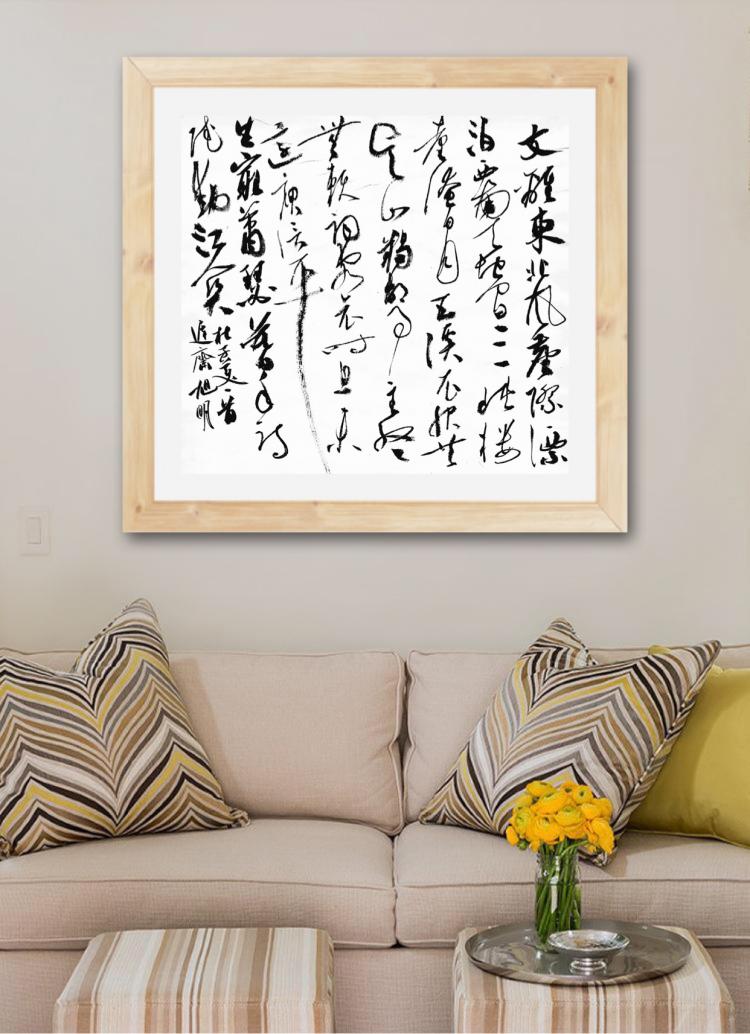 支離東北風塵際漂
泊西南天地間三峡楼
臺淹日月五溪衣服共
雲山羯胡事主終
無賴詞客哀時且未
還庾信平
生最蕭瑟暮年詩
賦動江關
旭明